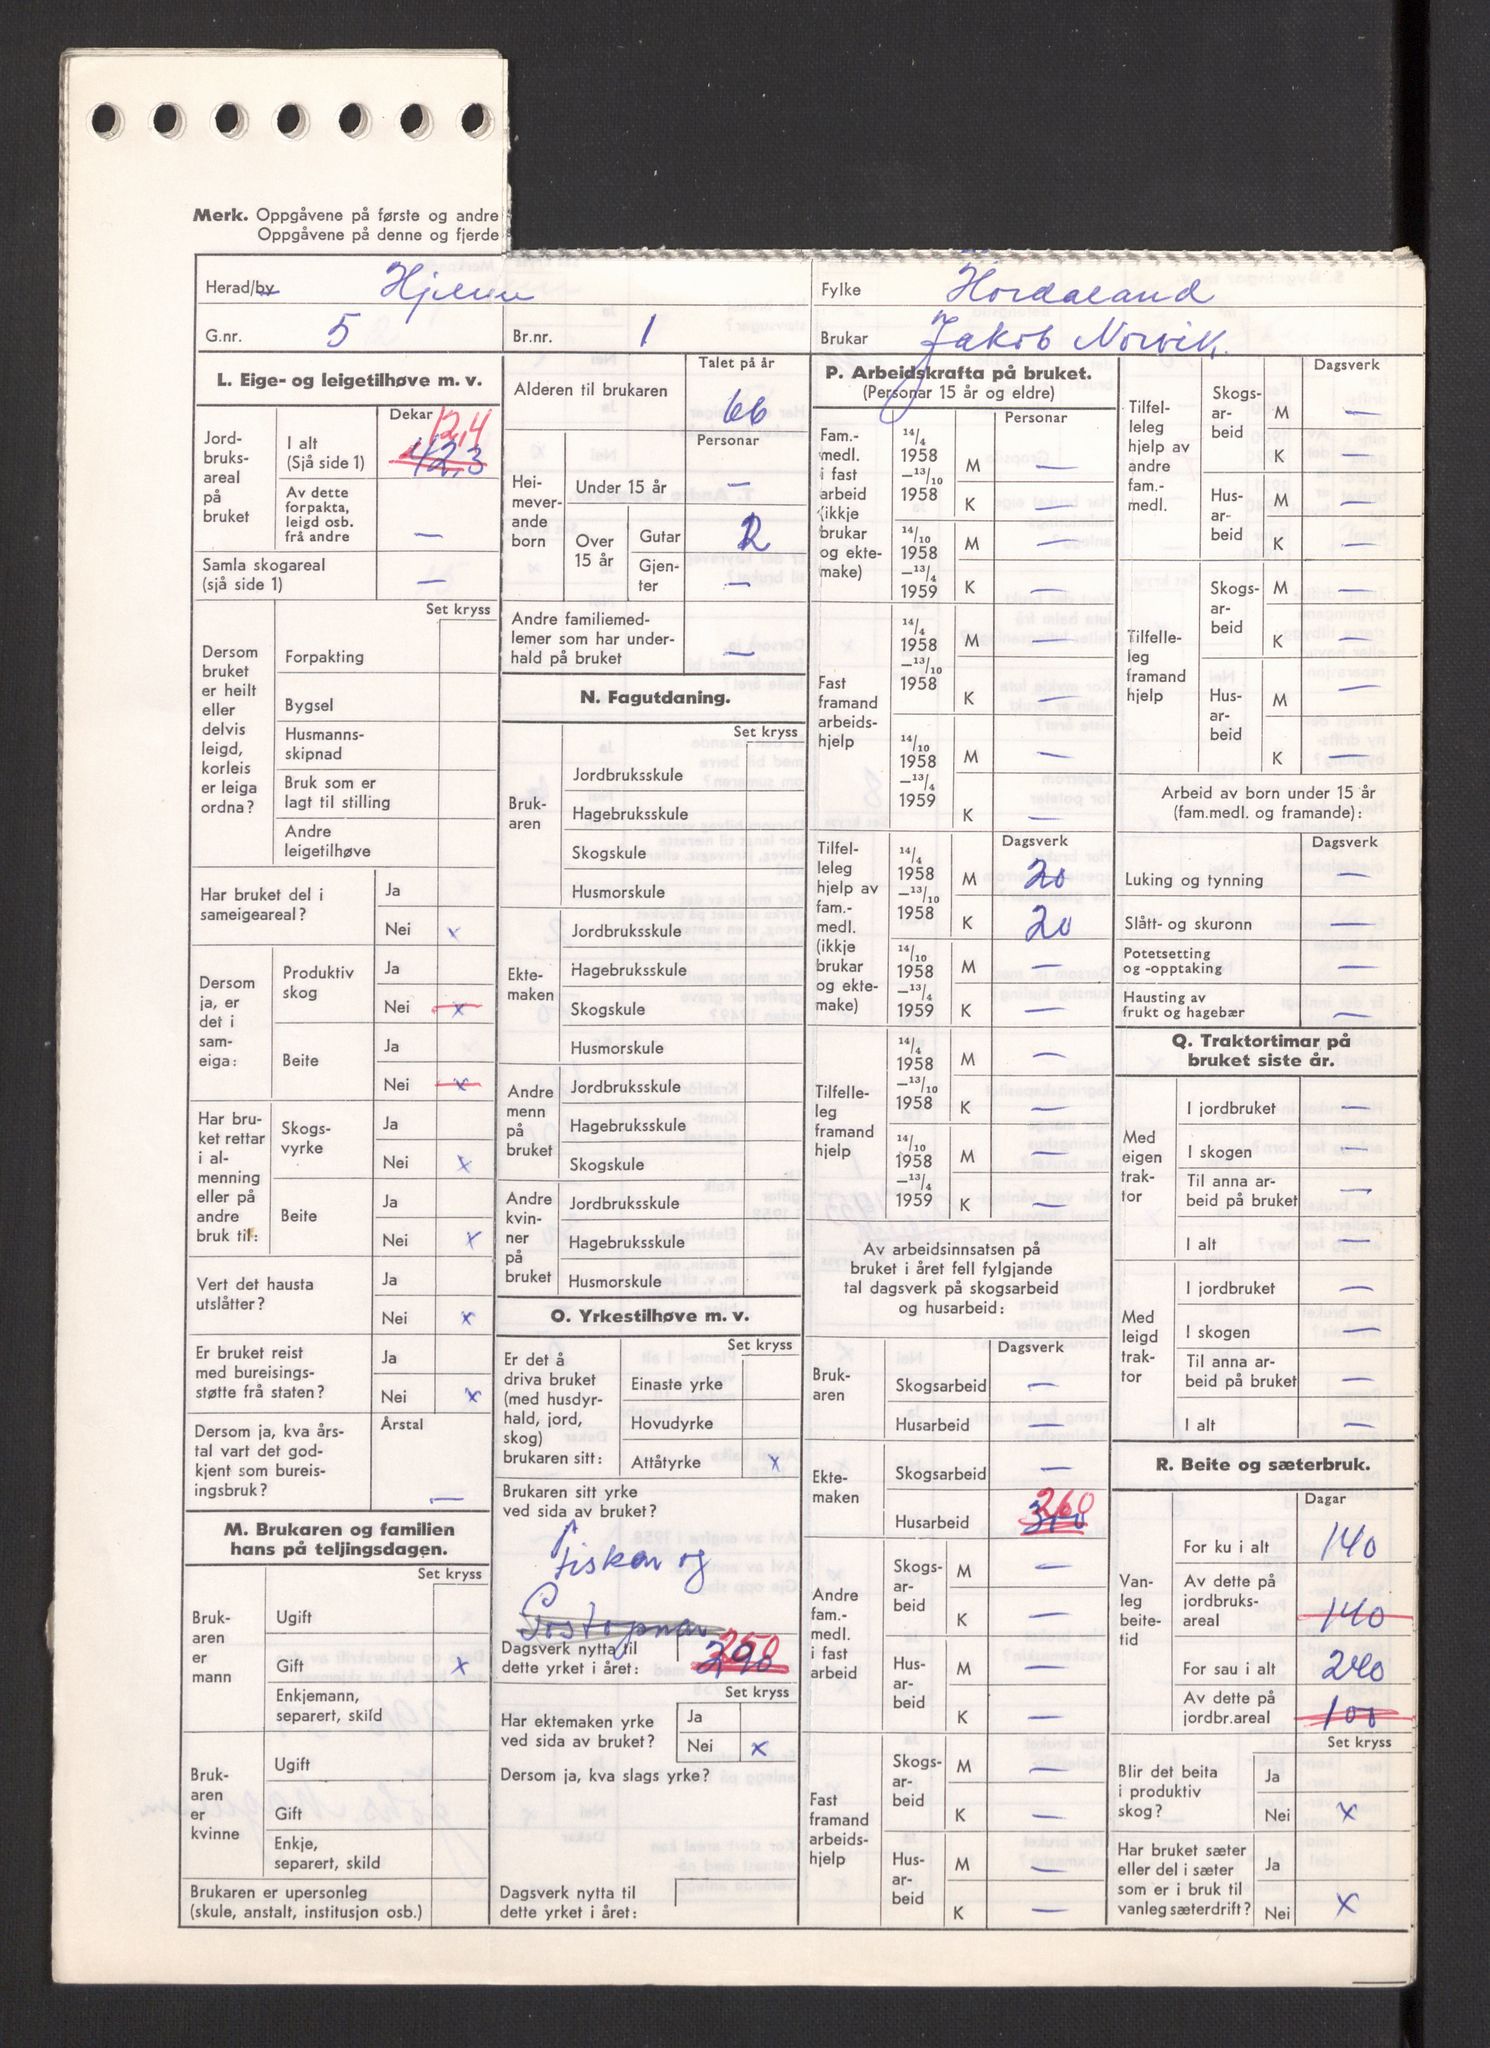 Merk. Oppgåvene på første og andre
Oppgåvene på denne og fjerde
Herad/by Hjelme
Fylke Hordaland
G.nr. 5
Br.nr. 1
Brukar Jakob Norvik.
L. Eige- og leigetilhøve m. v.
Dekar
Jordbruksareal på bruket
I alt (Sjå side 1) 12,4 42,3
Av dette forpakta, leigd osb. frå andre —
Samla skogareal (sjå side 1) —
Set kryss
Dersom bruket er heilt eller delvis leigd, korleis er leiga ordna?
Forpakting
Bygsel
Husmanns-skipnad
Bruk som er lagt til stilling
Andre leigetilhøve
Har bruket del i sameigeareal?
Ja
Nei x
Dersom ja, er det i sam-eiga:
Produktiv skog
Ja
Nei x
Beite
Ja
Nei x
Har bruket rettar i al-menning eller på andre bruk til:
Skogs-vyrke
Ja
Nei x
Beite
Ja
Nei x
Vert det hausta utslåtter?
Ja
Nei x
Er bruket reist med bureisings-støtte frå staten?
Ja
Nei x
Dersom ja, kva års-tal vart det god-kjent som bureis-ingsbruk?
Årstal
—
M. Brukaren og familien hans på teljingsdagen.
Set kryss
Brukaren er mann
Ugift
Gift x
Enkjemann, separert, skild
Brukaren er kvinne
Ugift
Gift
Enkje, separert, skild
Brukaren er upersonleg (skule, anstalt, institusjon osb.)
Talet på år
Alderen til brukaren 66
Personar
Heimeverande born
Under 15 år —
Over 15 år
Gutar 2
Gjenter —
Andre familiemedlemer som har underhald på bruket —
N. Fagutdaning.
Set kryss
Brukaren
Jordbruksskule
Hagebruksskule
Skogskule
Husmorskule
Ektemaken
Jordbruksskule
Hagebruksskule
Skogskule
Husmorskule
Andre menn på bruket
Jordbruksskule
Hagebruksskule
Skogskule
Andre kvinner på bruket
Jordbruksskule
Hagebruksskule
Husmorskule
O. Yrkestilhøve m. v.
Set kryss
Er det å driva bruket (med husdyrhald, jord, skog) brukaren sitt:
Einaste yrke
Hovudyrke
Attåtyrke x
Brukaren sitt yrke ved sida av bruket?
Fiskar og
Postopnar
Dagsverk nytta til dette yrket i året: 250 290
Set kryss
Har ektemaken yrke ved sida av bruket?
Ja
Nei x
Dersom ja, kva slags yrke?
Dagsverk nytta til dette yrket i året:
P. Arbeidskrafta på bruket.
(Personar 15 år og eldre)
Personar
Fam.-medl. i fast arbeid (ikkje brukar og ektemake)
14/4 1958 —13/10 1958
M —
K —
14/10 1958 —13/4 1959
M —
K —
Fast framand arbeidshjelp
14/4 1958 —13/10 1958
M —
K —
14/10 1958 —13/4 1959
M —
K —
Dagsverk
Tilfelleleg hjelp av fam.-medl. (ikkje brukar og ektemake)
14/4 1958 —13/10 1958
M 20
K 20
14/10 1958 —13/4 1959
M —
K —
Tilfelleleg framand hjelp
14/4 1958 —13/10 1958
M —
K —
14/10 1958 —13/4 1959
M —
K —
Av arbeidsinnsatsen på bruket i året fell fylgjande tal dagsverk på skogsarbeid og husarbeid:
Dagsverk
Brukaren
Skogsarbeid —
Husarbeid —
Ektemaken
Skogsarbeid —
Husarbeid 260 300
Andre fam.-medl. i fast arbeid
Skogsarbeid
M —
K —
Husarbeid
M —
K —
Fast framand arbeidshjelp
Skogsarbeid
M —
K —
Husarbeid
M —
K —
Dagsverk
Tilfelleleg hjelp av andre fam.-medl.
Skogsarbeid
M —
K —
Husarbeid
M —
K —
Tilfelleleg framand hjelp
Skogsarbeid
M —
K —
Husarbeid
M —
K —
Arbeid av born under 15 år (fam.medl. og framande):
Dagsverk
Luking og tynning —
Slått- og skuronn —
Potetsetting og -opptaking —
Hausting av frukt og hagebær —
Q. Traktortimar på bruket siste år.
Med eigen traktor
I jordbruket —
I skogen —
Til anna arbeid på bruket —
I alt —
Med leigd traktor
I jordbruket —
I skogen —
Til anna arbeid på bruket —
I alt —
R. Beite og sæterbruk.
Dagar
Vanleg beitetid
For ku i alt 140
Av dette på jordbruksareal 140
For sau i alt 240
Av dette på jordbr.areal 100
Set kryss
Blir det beita i produktiv skog?
Ja
Nei x
Har bruket sæter eller del i sæter som er i bruk til vanleg sæterdrift?
Ja
Nei x